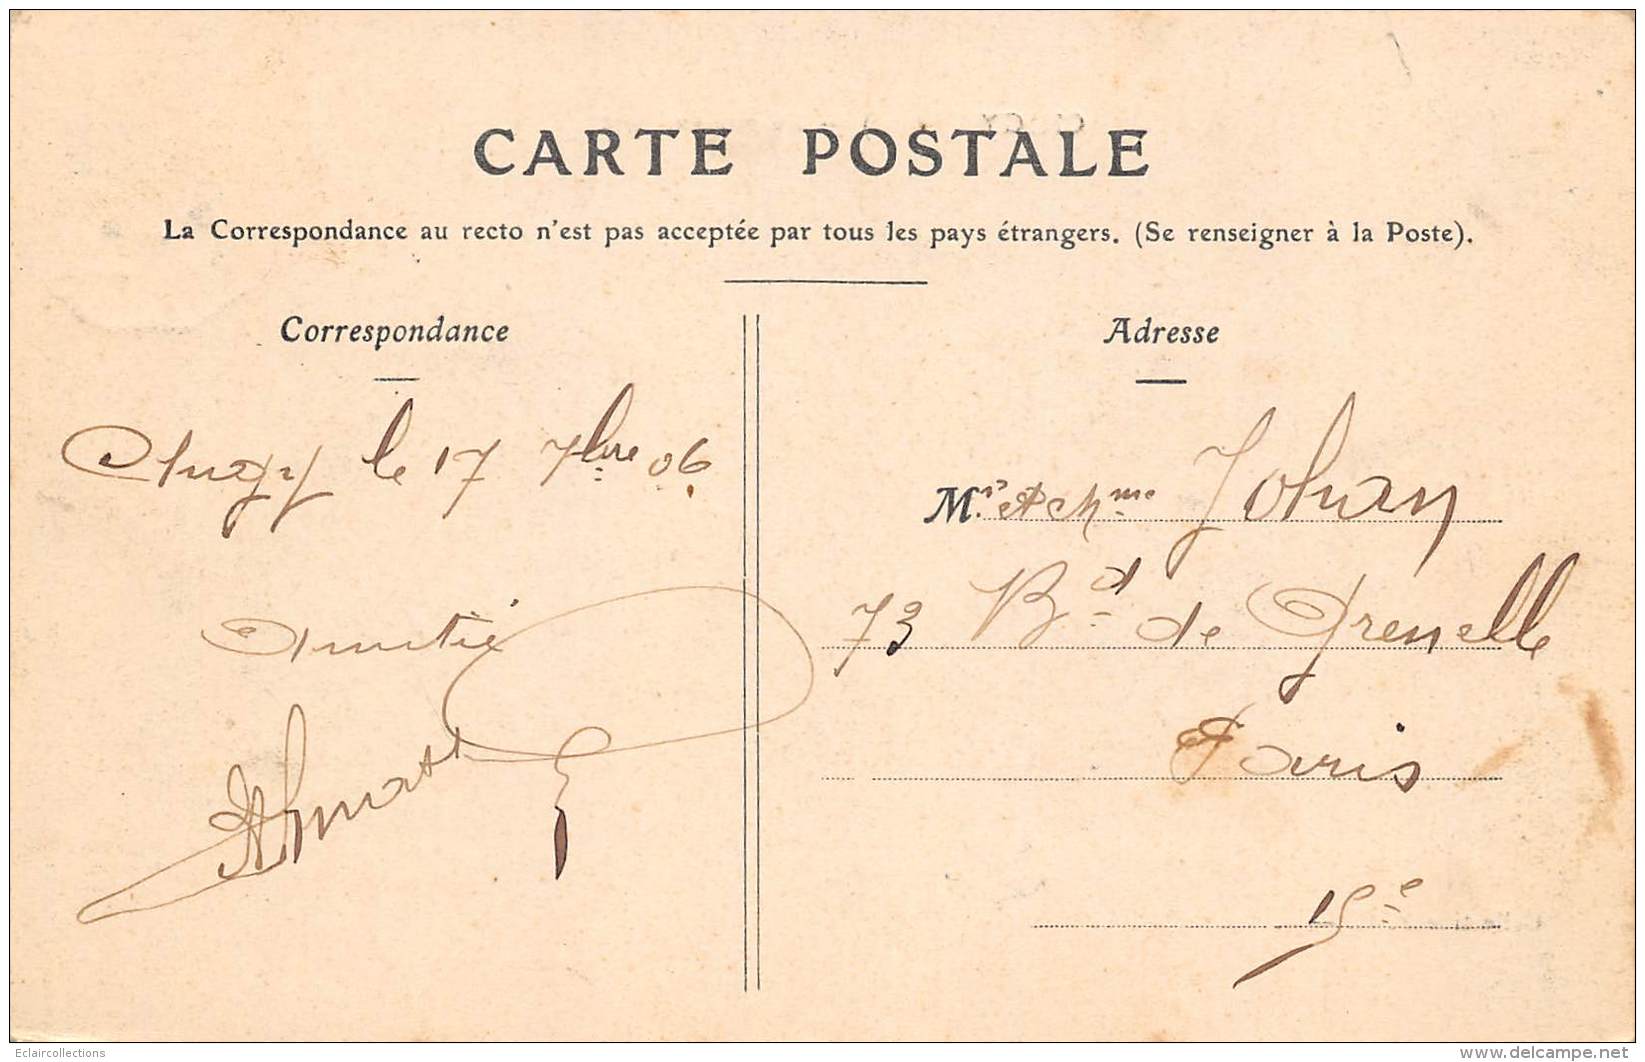 CARTE POSTALE
La Correspondance au recto n'est pas acceptée par tous les pays étrangers. (Se renseigner à la Poste).
Correspondance
le 17 7bre 06.
Amitié
Adresse
Mr. et Mme Johan
73 Bd de Grenelle
Paris
15e
Eclaircollections
www.delcampe.net